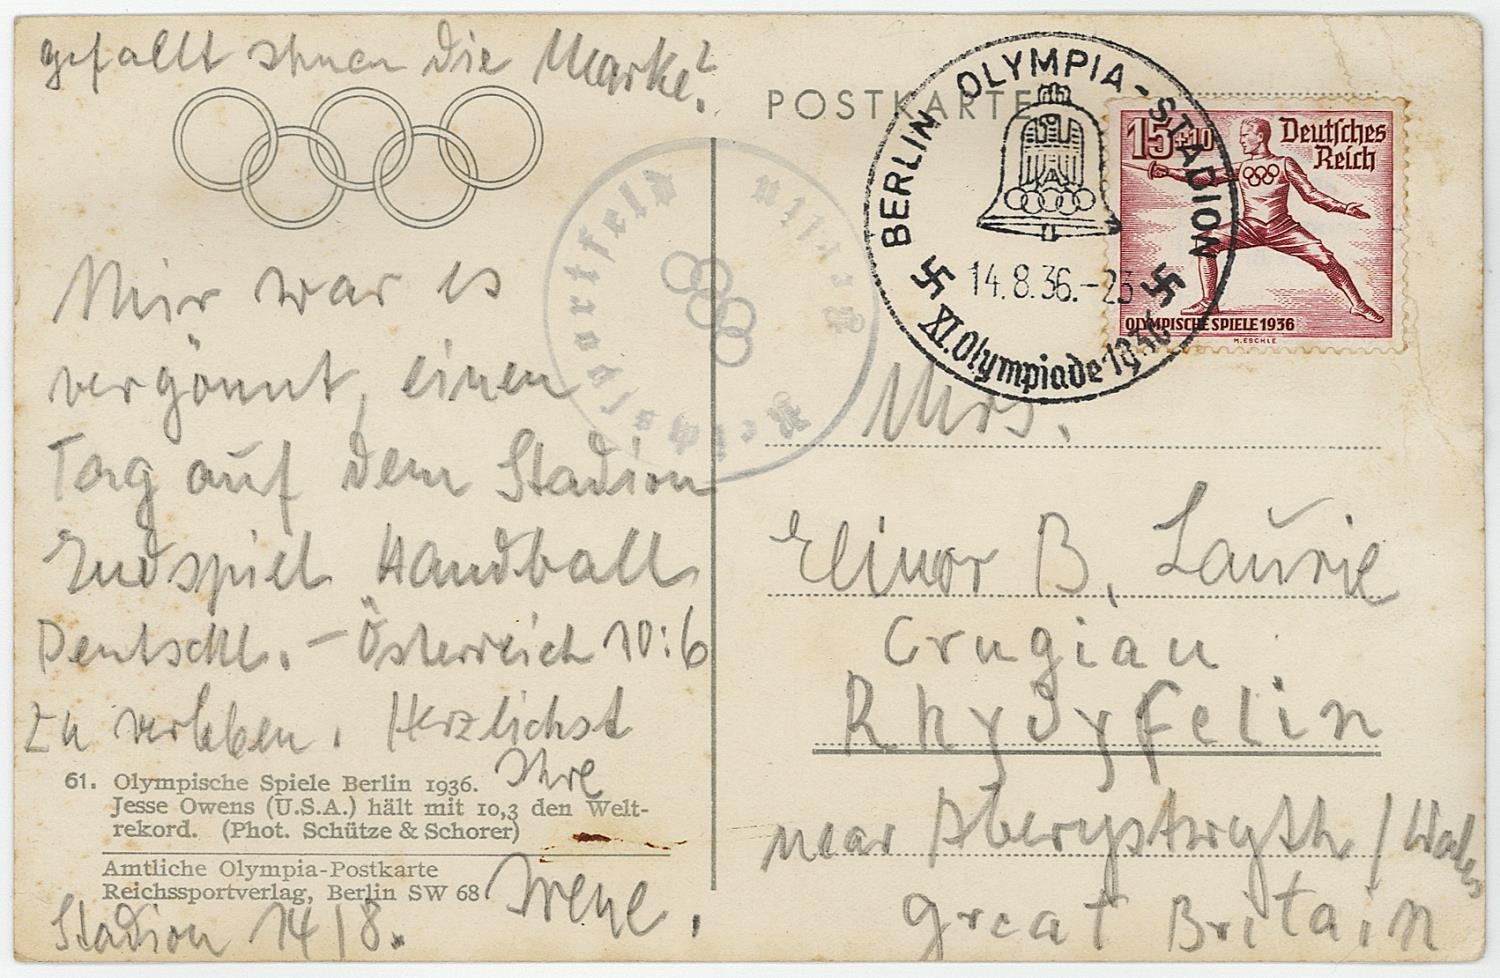 gefallt Ihnen die Marke?
Mir war es
vergönnt, einen
Tag auf dem Stadion
Endspiel Handball
Deutschl. – Österreich 10:6
zu verleben. Herzlichst
Ihre
Irene.
Stadion 14/8.
61. Olympische Spiele Berlin 1936.
Jesse Owens (U.S.A.) hält mit 10,3 den Welt-
rekord. (Phot. Schütze & Schorer)
Amtliche Olympia-Postkarte
Reichssportverlag, Berlin SW 68
Reichssportfeld
POSTKARTE
BERLIN OLYMPIA-STADION
14.8.36.-23
XI. Olympiade 1936
15+10
Deutsches
Reich
OLYMPISCHE SPIELE 1936
M.ESCHLE
Mrs.
Elinor B. Laurie
Crugiau
Rhydyfelin
near Aberystwyth / Wales
Great Britain